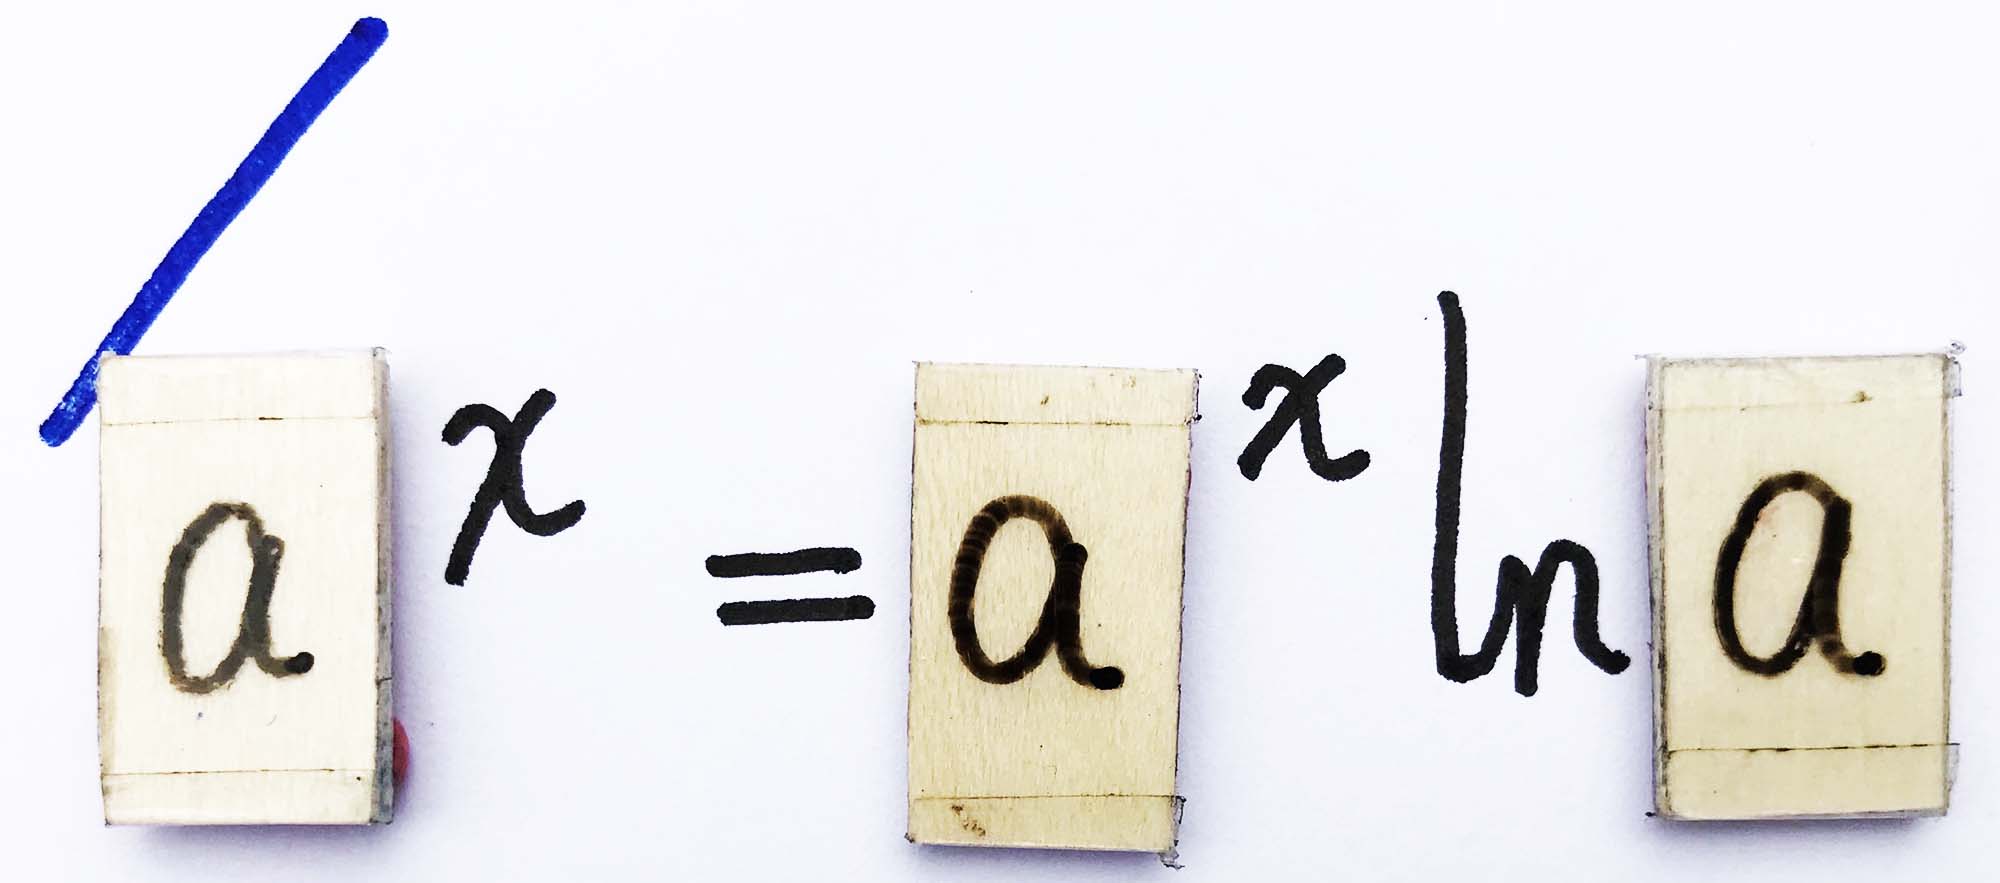 /a^x = a^x ln a